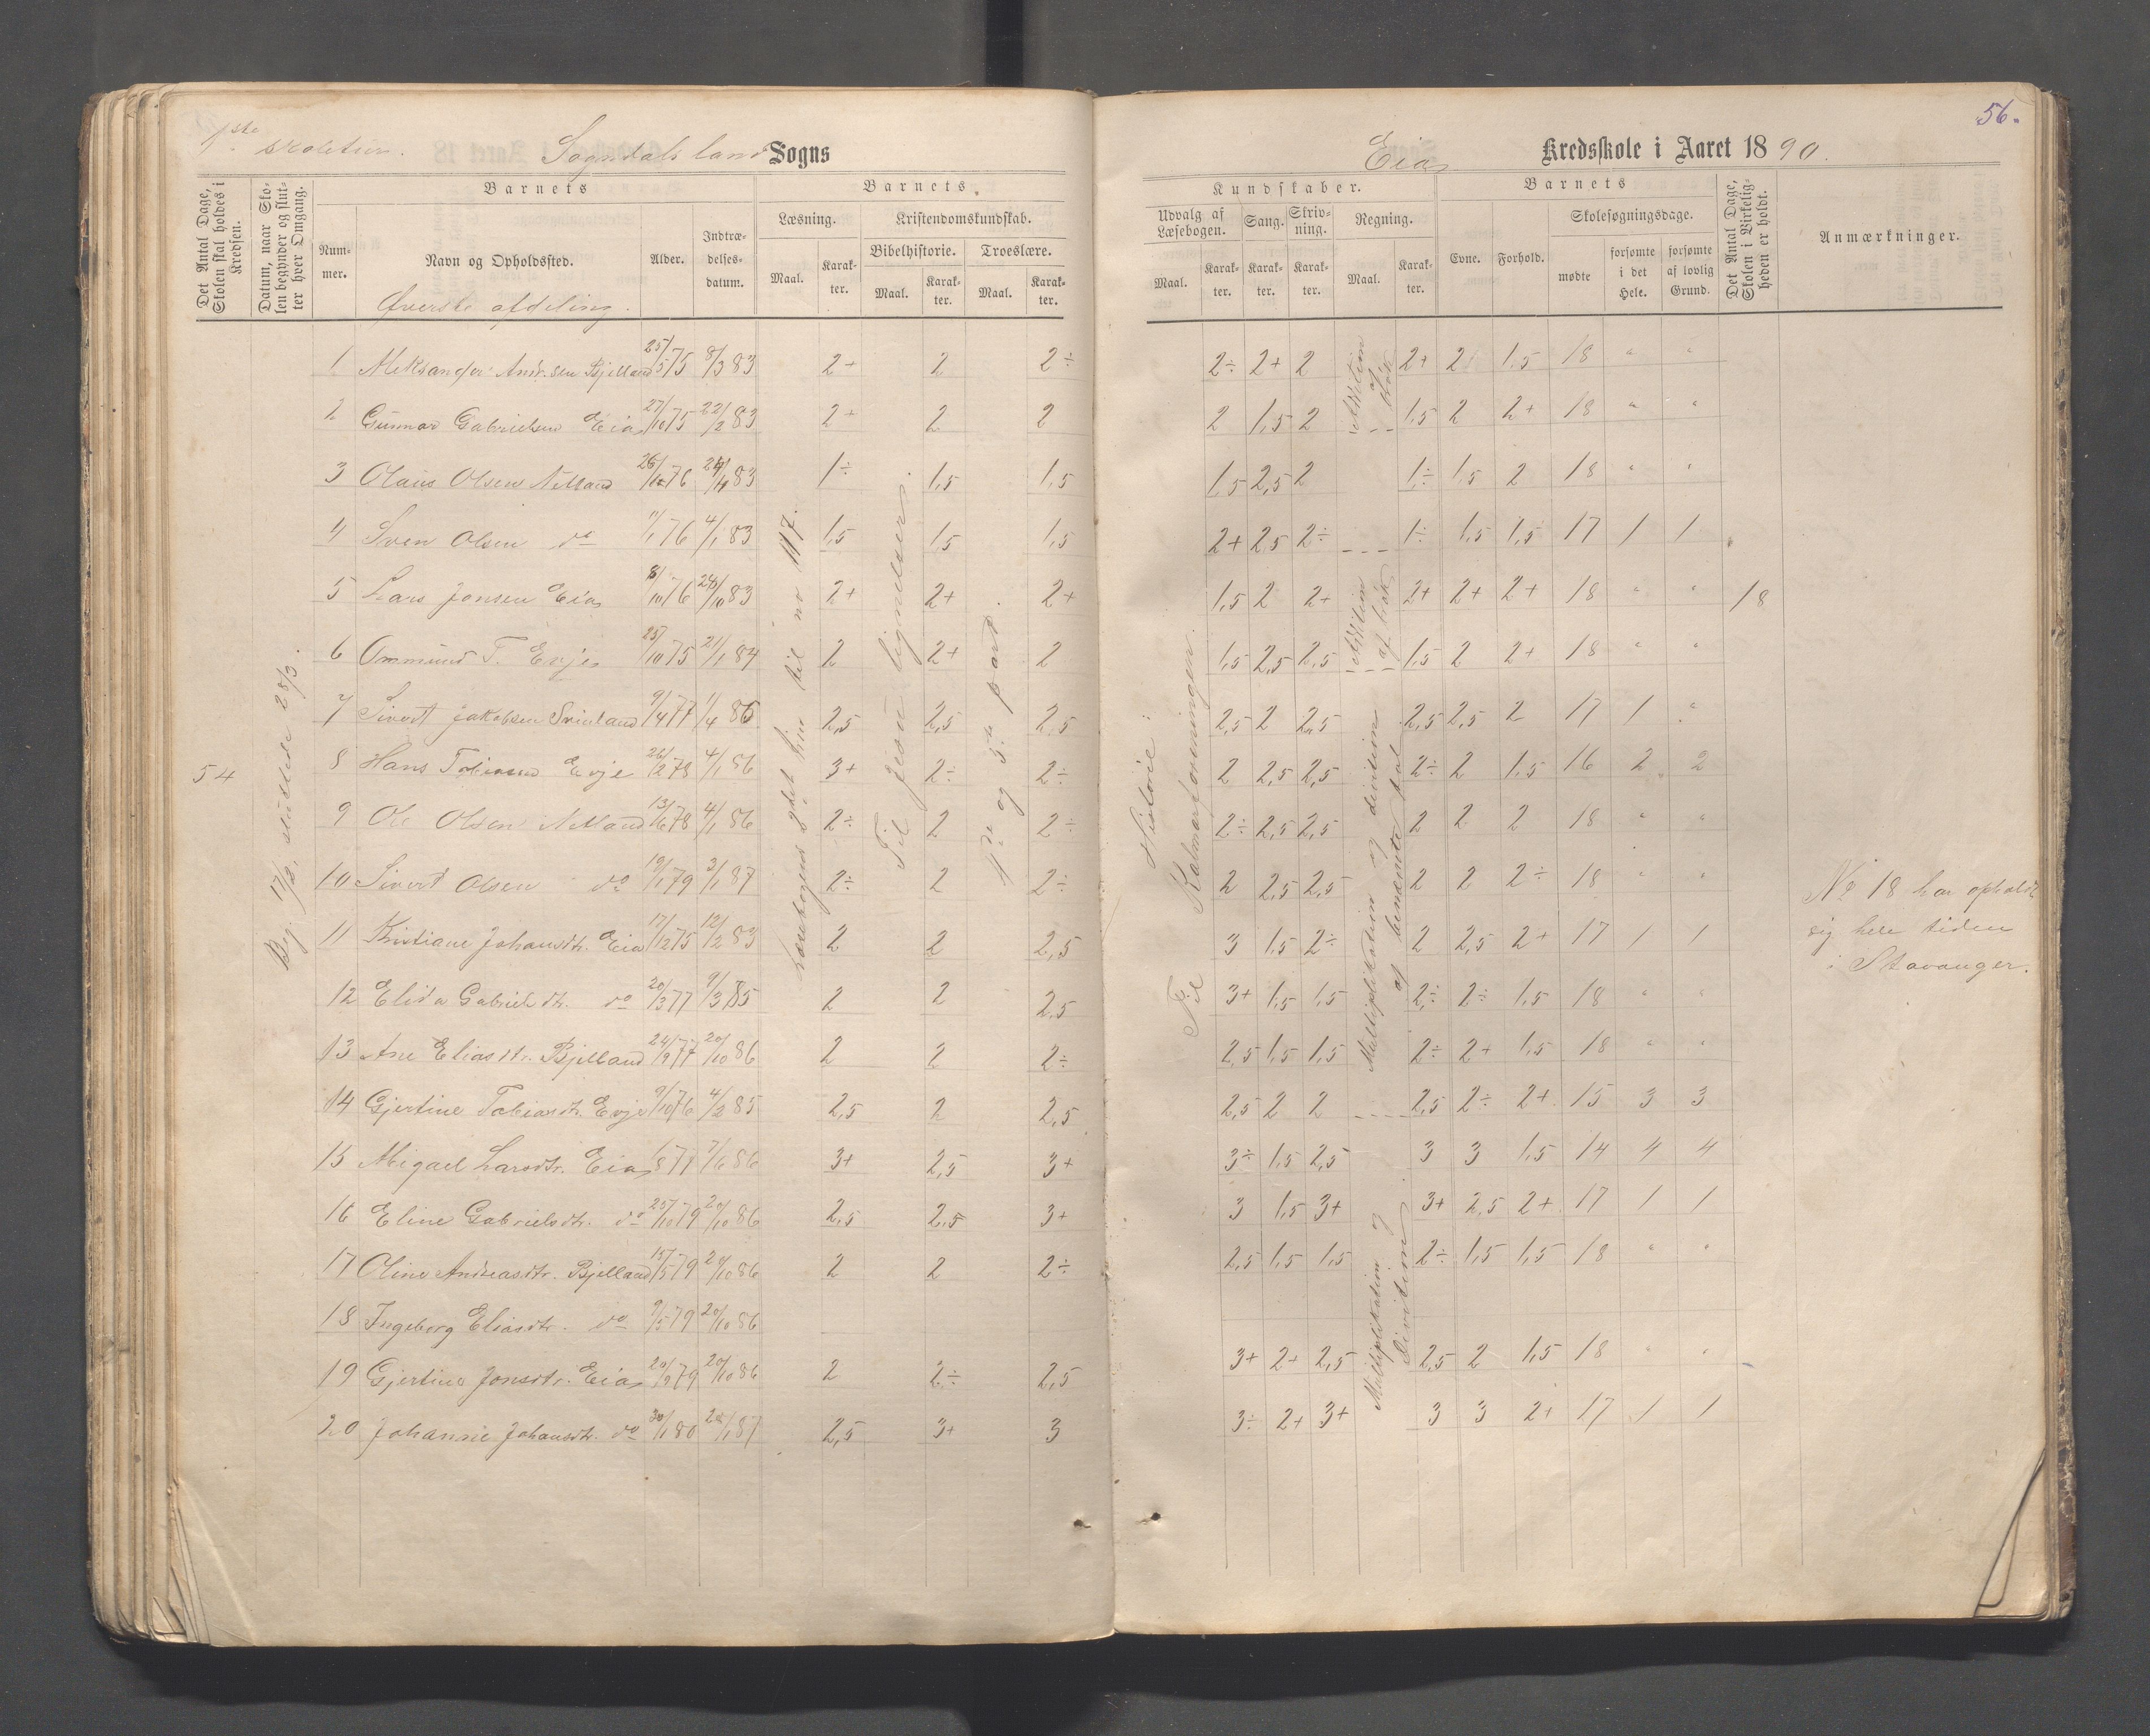 56.
1ste skoletur. Sogndals land Sogns
Eia Kredsskole i Aaret 1890.
Det Antal Dage, Skolen skal holdes i Kredsen.
Datum, naar Skolen begynder og slutter hver Omgang.
Barnets
Nummer.
Navn og Opholdssted.
Øverste afdeling.
Alder.
Indtrædelsesdatum.
Barnets
Læsning.
Maal. Karakter.
Kristendomskundskab.
Bibelhistorie. Troeslære.
Maal. Karakter. Maal. Karakter.
Kundskaber.
Udvalg af Læsebogen. Sang. Skrivning. Regning.
Maal. Karakter. Karakter. Karakter. Maal. Karakter.
Barnets
Evne. Forhold. Skolesøgningsdage.
mødte forsømte i det Hele. forsømte af lovlig Grund.
Det Antal Dage, Skolen i Virkeligheden er holdt.
Anmærkninger.
54
Beg. 17/2, sluttede 28/3.
Til Jesu lignelser.
1ste og 3die part.
Historie:
Til Kalmarforeningen.
Addition af brøk
Addition af brøk
Multiplikation og division af benævnte tal
Multiplikation og Division
1 Aleksander Andr.sen Bjelland 25/5 75 8/3 83 2+ 2 2÷ 2÷ 2+ 2 2+ 2 1,5 18 " "
2 Gunnar Gabrielsen Eia 27/10 75 22/2 83 2+ 2 2 2 1,5 2 1,5 2 2+ 18 " "
3 Olaus Olsen Netland 1÷ 1,5 1,5 1,5 2,5 2 1÷ 1,5 2 18 " "
4 Sven Olsen do 11/1 76 4/1 83 1,5 1,5 1,5 2+ 2,5 2÷ 1÷ 1,5 1,5 17 1 1
5 Lars Jonsen Eia 8/10 76 24/10 83 2+ 2+ 2+ 1,5 2 2+ 2+ 2+ 2+ 18 " " 18
6 Ommund T. Evje 25/10 75 21/1 84 2 2+ 2 1,5 2,5 2,5 1,5 2 2+ 18 " "
7 Sivert Jakobsen 9/4 77 1/4 86 2,5 2,5 2,5 2,5 2 2,5 2,5 2,5 2 17 1 "
8 Hans Tobiassen Evje 26/2 78 4/1 86 3+ 2÷ 2÷ 2 2,5 2,5 2÷ 2 1,5 16 2 2
9 Ole Olsen Netland 13/6 78 4/1 86 2÷ 2 2÷ 2÷ 2,5 2,5 2 2 2 18 " "
10 Sivert Olsen do 19/1 79 3/1 87 2÷ 2 2÷ 2 2,5 2,5 2 2 2÷ 18 " "
11 Kristiane Johansdtr. Eia 17/12 75 12/2 83 2 2 2,5 3 1,5 2÷ 2 2,5 2+ 17 1 1
12 Elisa Gabrielsdtr. do 20/3 77 9/3 85 2 2 2,5 3+ 1,5 1,5 2÷ 2÷ 1,5 18 " "
13 Ane Eliasdtr. Bjelland 24/9 77 20/10 86 2 2 2÷ 2,5 1,5 1,5 2÷ 2+ 1,5 18 " "
14 Gjertine Tobiasdtr. Evje 9/10 76 4/2 85 2,5 2 2,5 2,5 2 2 2,5 2÷ 2+ 15 3 3
15 Migael Larsdtr. Eia 3+ 2,5 3+ 3÷ 1,5 2,5 3 3 1,5 14 4 4
16 Eline Gabrielsdtr. do 25/10 79 20/10 86 2,5 2,5 3+ 3 1,5 3+ 3+ 2,5 2+ 17 1 1
17 Oline Andreasdtr. Bjelland 15/5 79 20/10 86 2 2 2÷ 2,5 1,5 1,5 2÷ 1,5 1,5 18 " "
18 Ingeborg Eliasdtr. do 9/5 79 20/10 86
19 Gjertine Jonsdtr. Eia 20/9 79 20/10 86 2 2÷ 2,5 3+ 2+ 2,5 2,5 2 1,5 18 " "
20 Johanne Johansdtr. do 30/1 80 87 2,5 3+ 3 3÷ 2+ 3+ 3 3 2+ 17 1 1
No 18 har opholdt
sig hele tiden
i Stavanger.